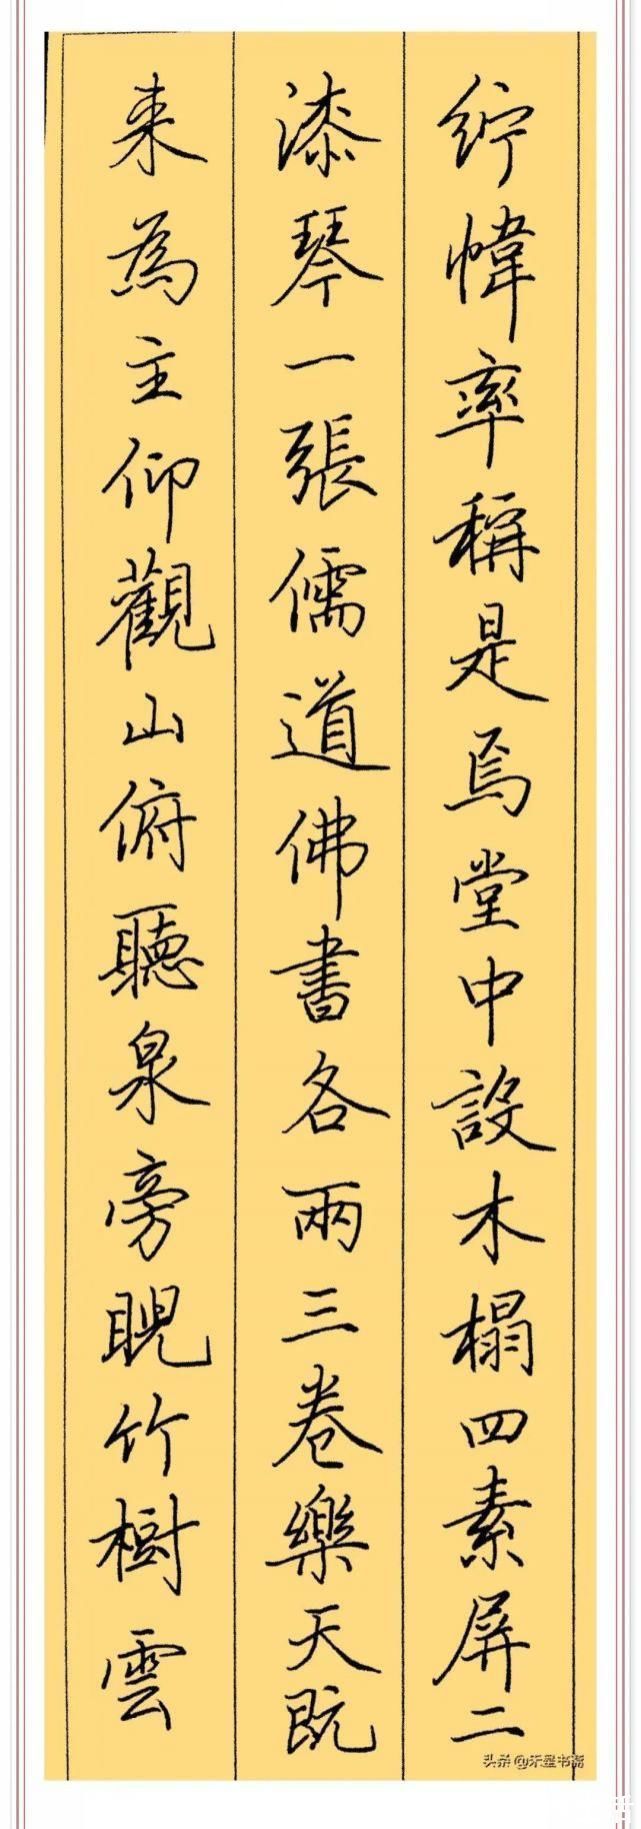 纻幃率稱是焉堂中設木榻四素屏二
漆琴一張儒道佛書各兩三卷樂天既
来為主仰觀山俯聽泉旁睨竹樹雲
头条@禾壐书斋